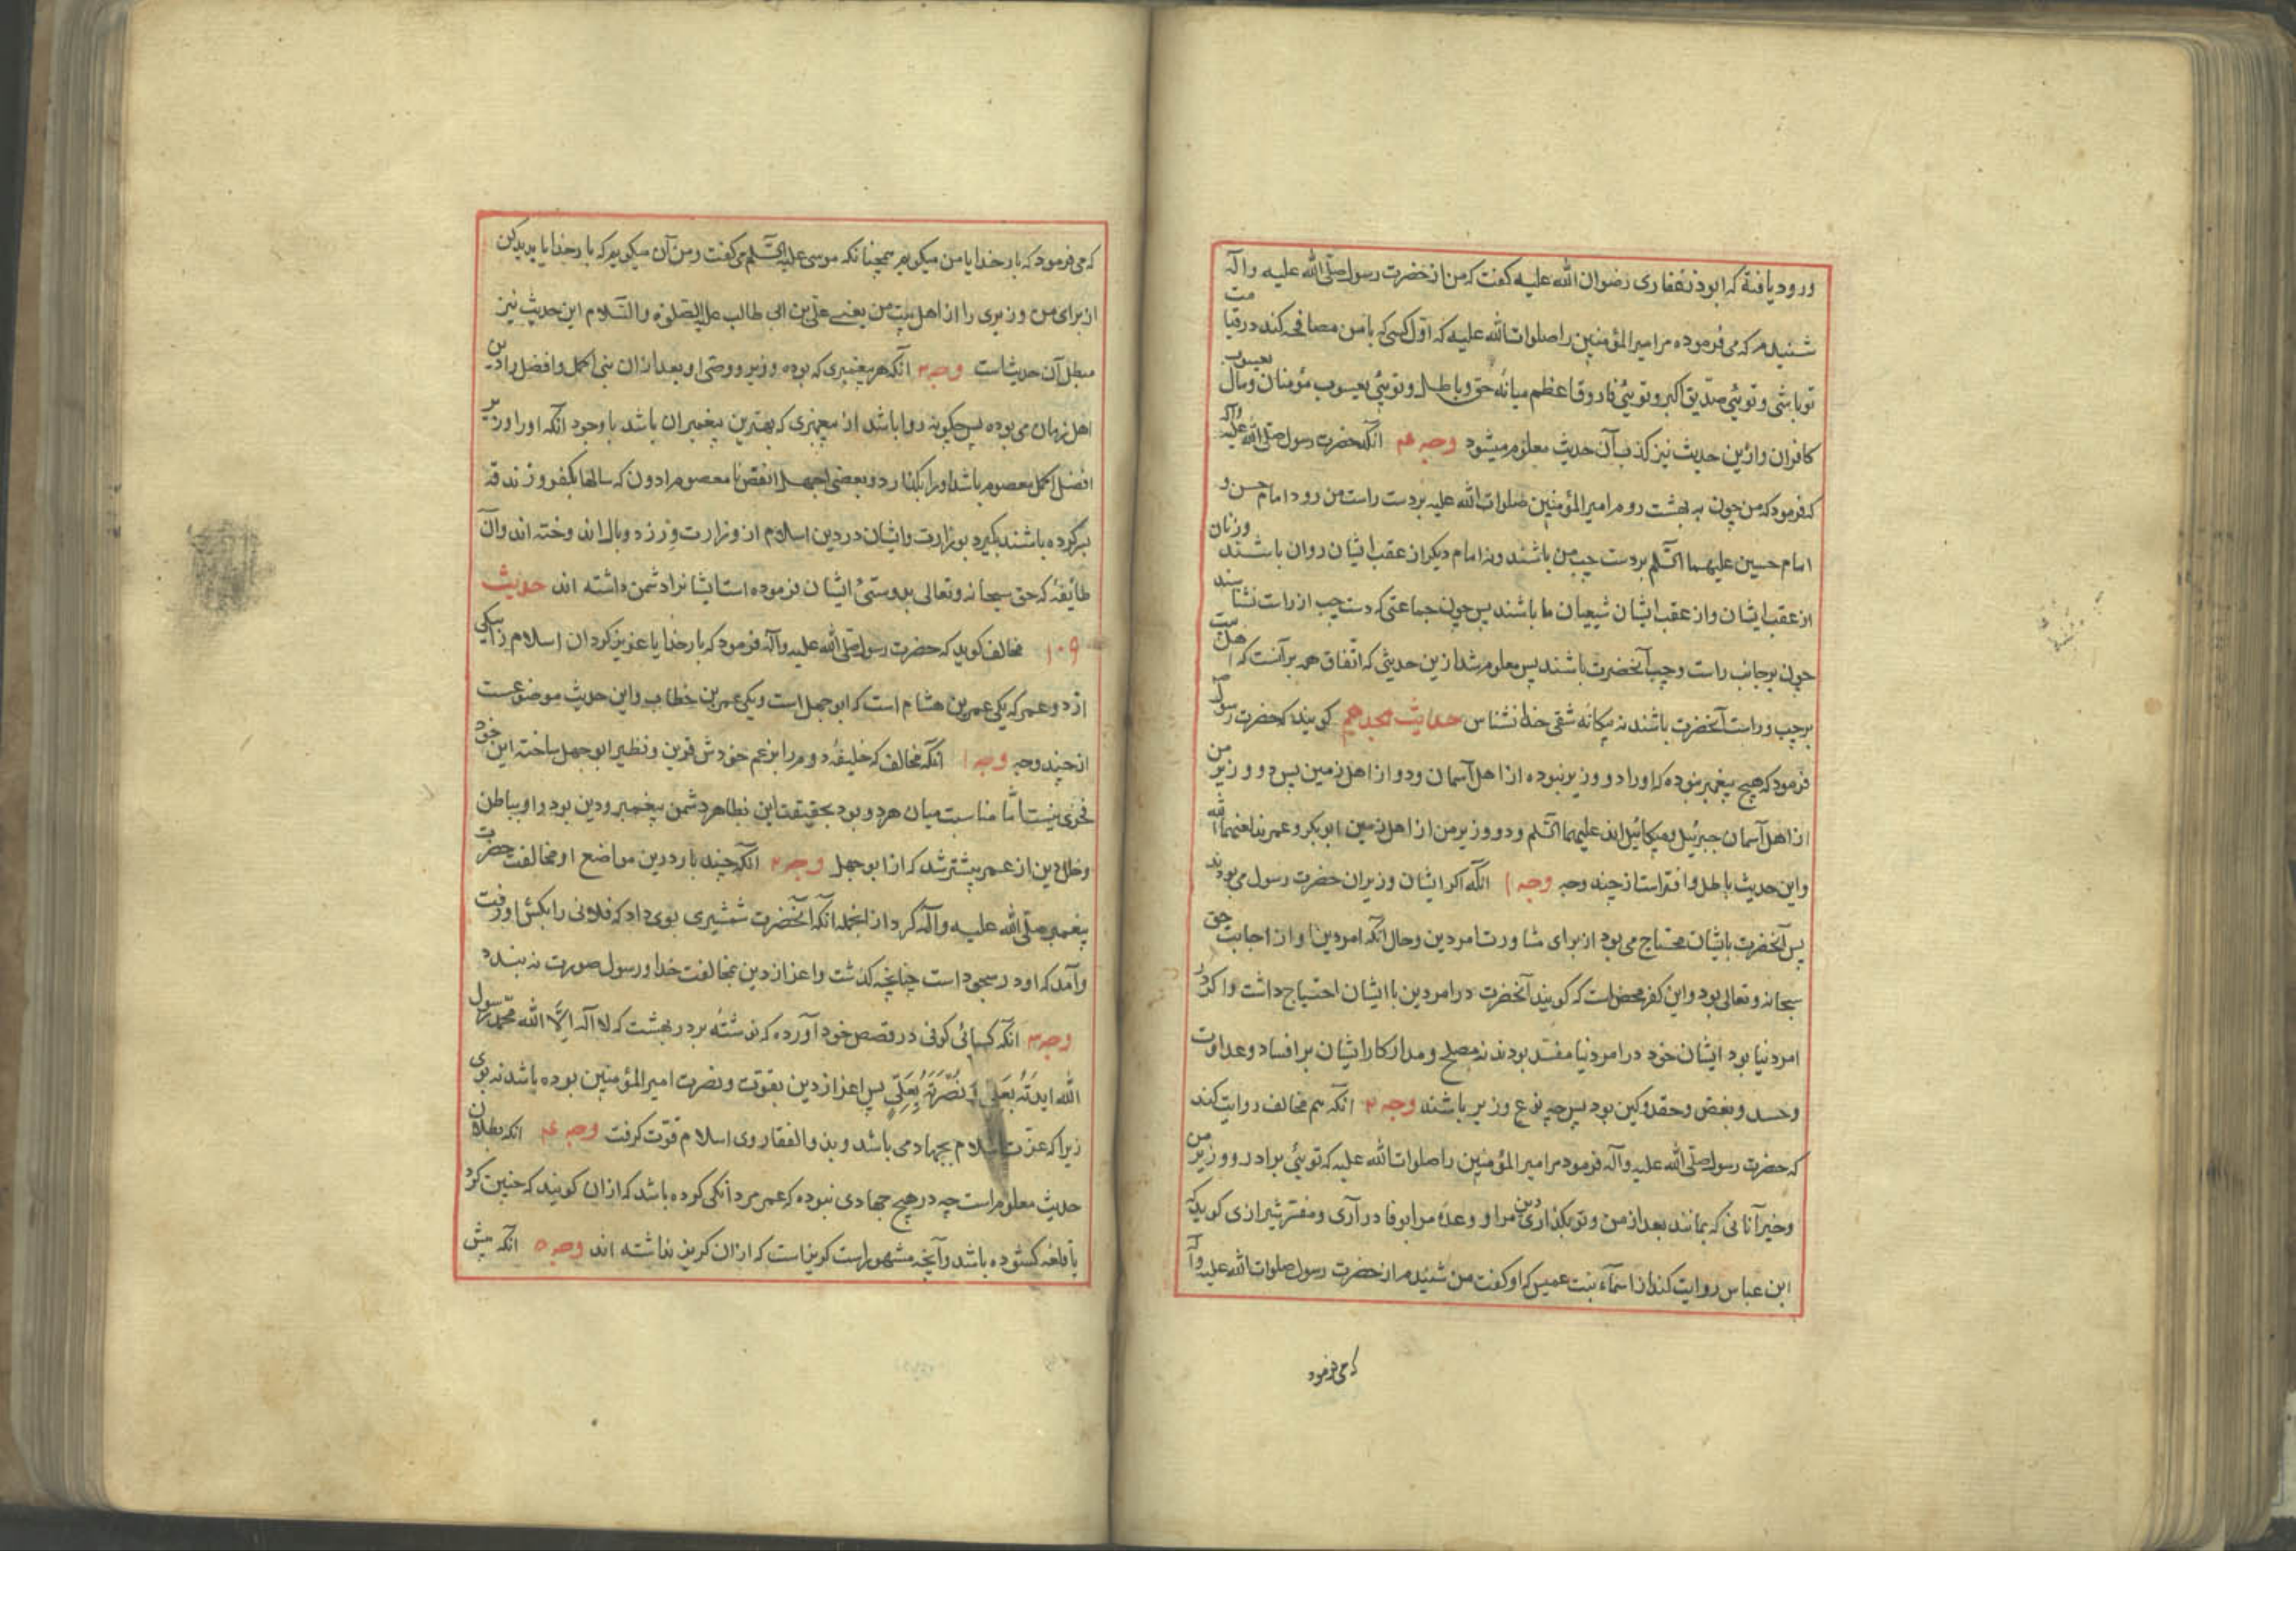 ورود یافته که ابوذر غفاری رضوان الله علیه کفت که من از حضرت رسول صلّی الله علیه وآله
شنیدم که می فرموده مر امیر المؤمنین را صلوات الله علیه که اوّل کسی که با من مصافحه کند در قیامت
تو باشی و توئی صدّیق اکبر و توئی فاروق اعظم میانهٔ حق و باطل و توئی یعسوب مؤمنان و مال یعسوب
کافران و ازین حدیث نیز کذب آن حدیث معلوم میشود وجه ۴ آنکه حضرت رسول صلّی الله علیه وآله
که فرمود که من چون به بهشت روم امیر المؤمنین صلوات الله علیه بر دست راست من رود امام حسن و
امام حسین علیهما السّلم بر دست چپ من باشند ونه امام دیکر از عقب ایشان روان باشند وزنان
از عقب ایشان و از عقب ایشان شیعیان ما باشند پس چون جماعتی که دست چپ از راست نشناسند
چون بر جانب راست و چپ آنحضرت باشند پس معلوم شد ازین حدیثی که اتّفاق همه بر آنست که اهل بیت
بر چپ و راست آنحضرت باشند نه بیکانه شقی خدا نشناس حدیث هجدهم کویند که حضرت رسول
فرمود که هیچ پیغمبر نبوده که او را دو وزیر نبوده از اهل آسمان و دو از اهل زمین پس دو وزیر من
از اهل آسمان جبرئیل و میکائیل اند علیهما السّلم و دو وزیر من از اهل زمین ابوبکر و عمرند
و این حدیث باطل و افتراست از چند وجه وجه ۱ آنکه اکر ایشان وزیران حضرت رسول می بودند
پس آنحضرت بایشان محتاج می بود از برای مشاورت امر دین و حال آنکه امر دین او از اجابت حق
سبحانه و تعالی بود و این کفر محض است که کویند آنحضرت در امر دین با ایشان احتیاج داشت و اکر در
امر دنیا بود ایشان خود در امر دنیا مفسد بودند نه مصلح و مدار کار ایشان بر افساد و عداوت
وحسد و بغض و حقد و کین بود پس چه نوع وزیر باشند وجه ۲ آنکه هم مخالف روایت کند
که حضرت رسول صلّی الله علیه وآله فرمود مر امیر المؤمنین را صلوات الله علیه که توئی برادر و وزیر من
وخیر آنانی که بمانند بعد از من و تو بکذاری دین مرا و وعدهٔ مرا بوفا در آری و مفسّر شیرازی کوید که
ابن عباس روایت کند از اسمآء بنت عمیس که او کفت من شنیدم از حضرت رسول صلوات الله علیه وآله
که می فرمود
که می فرمود که بار خدایا من میکویم همچنانکه موسی علیه السّلم می کفت و من آن میکویم که بار خدایا پدید کن
از برای من وزیری را از اهل بیت من یعنی علی بن ابی طالب علیه الصّلوة والسّلام این حدیث نیز
مبطل آن حدیث است وجه ۳ آنکه هر پیغمبری که بوده وزیر و وصی او بعد از ان نبی اکمل و افضل
اهل زمان می بوده پس چکونه روا باشد از پیغمبری که بهترین پیغمبران باشد با وجود آنکه او را وزیر
افضل اکمل معصوم باشد او را بکذارد و بعضی اجهل انقص نا معصوم ادون که سالها بکفر و زندقه
بسر کرده باشند بکیرد بوزارت و ایشان در دین اسلام از وزارت وزر و وبال اندوخته اند و آن
طائفهٔ که حق سبحانه وتعالی بدوستیٔ ایشان فرموده است ایشانرا دشمن داشته اند حدیث
۱۰۹ مخالف کوید که حضرت رسول صلّی الله علیه وآله فرمود که بار خدایا عزیز کردان اسلام را بیکی
از دو عمر که یکی عمر بن هشام است که ابو جهل است و یکی عمر بن خطاب و این حدیث موضوعست
از چند وجه وجه ۱ آنکه مخالف که خلیفهٔ دوم را بزعم خودش قرین و نظیر ابو جهل ساخته این خود
فخری نیست امّا مناسبت میان هر دو بود بحقیقت این بظاهر دشمن پیغمبر و دین بود و او بباطن
و خلل دین از عمر بیشتر شد که از ابو جهل وجه ۲ آنکه چند بار درین مواضع او مخالفت حضرت
پیغمبر صلّی الله علیه وآله کرد از انجمله آنکه آنحضرت شمشیری بوی داد که فلانی را بکش او رفت
وآمد که او در سجود است چنانچه کذشت و اعزاز دین بمخالفت خدا و رسول صورت نه بندد
وجه ۳ آنکه کسائی کوفی در قصص خود آورده که نوشته بر در بهشت که لا اله الّا الله محمّد رسول
الله ایدته بعلی و نصرته بعلی پس اعزاز دین بقوّت و نصرت امیر المؤمنین بوده باشد نه بوی
زیرا که عزّت اسلام بجهاد می باشد و بذو الفقار وی اسلام قوّت کرفت وجه ۴ آنکه بطلان
حدیث معلوم است چه در هیچ جهادی نبوده که عمر مردانکی کرده باشد که از ان کویند که چنین کرد
یا قلعه کشوده باشد و آنچه مشهور است کریز است که از ان کریز نداشته اند وجه ۵ آنکه پیش